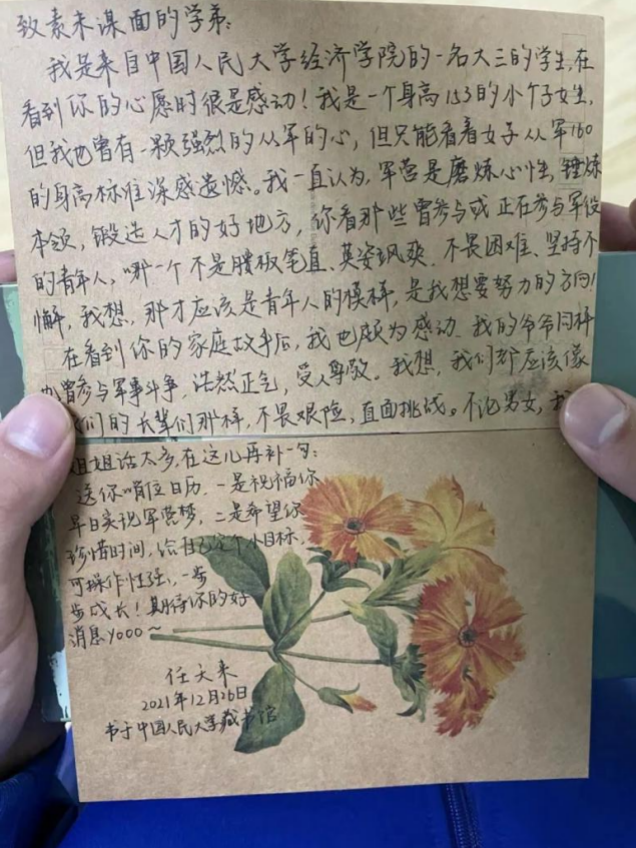 致素未谋面的学弟:
我是来自中国人民大学经济学院的一名大三的学生,在
看到你的心愿时很是感动!我是一个身高153的小个子女生,
但我也曾有一颗强烈的从军的心,但只能看着女子从军160
的身高标准深感遗憾。我一直认为,军营是磨炼心性,锤炼
本领,锻造人才的好地方,你看那些曾参与或正在参与军役
的青年人,哪一个不是腰板笔直、英姿飒爽、不畏困难、坚持不
懈,我想,那才应该是青年人的模样,是我想要努力的方向!
在看到你的家庭故事后,我也颇为感动,我的爷爷同样
也曾参与军事斗争,浩然正气,受人尊敬。我想,我们都应该像
我们的长辈们那样,不畏艰险,直面挑战。不论男女,我
姐姐话太多,在这儿再补一句:
送你哨位日历,一是祝福你
早日实现军营梦,二是希望你
珍惜时间,给自己定个小目标,
可操作性强,一步
步成长!期待你的好
消息Yooo~
任天来
2021年12月26日
书于中国人民大学藏书馆